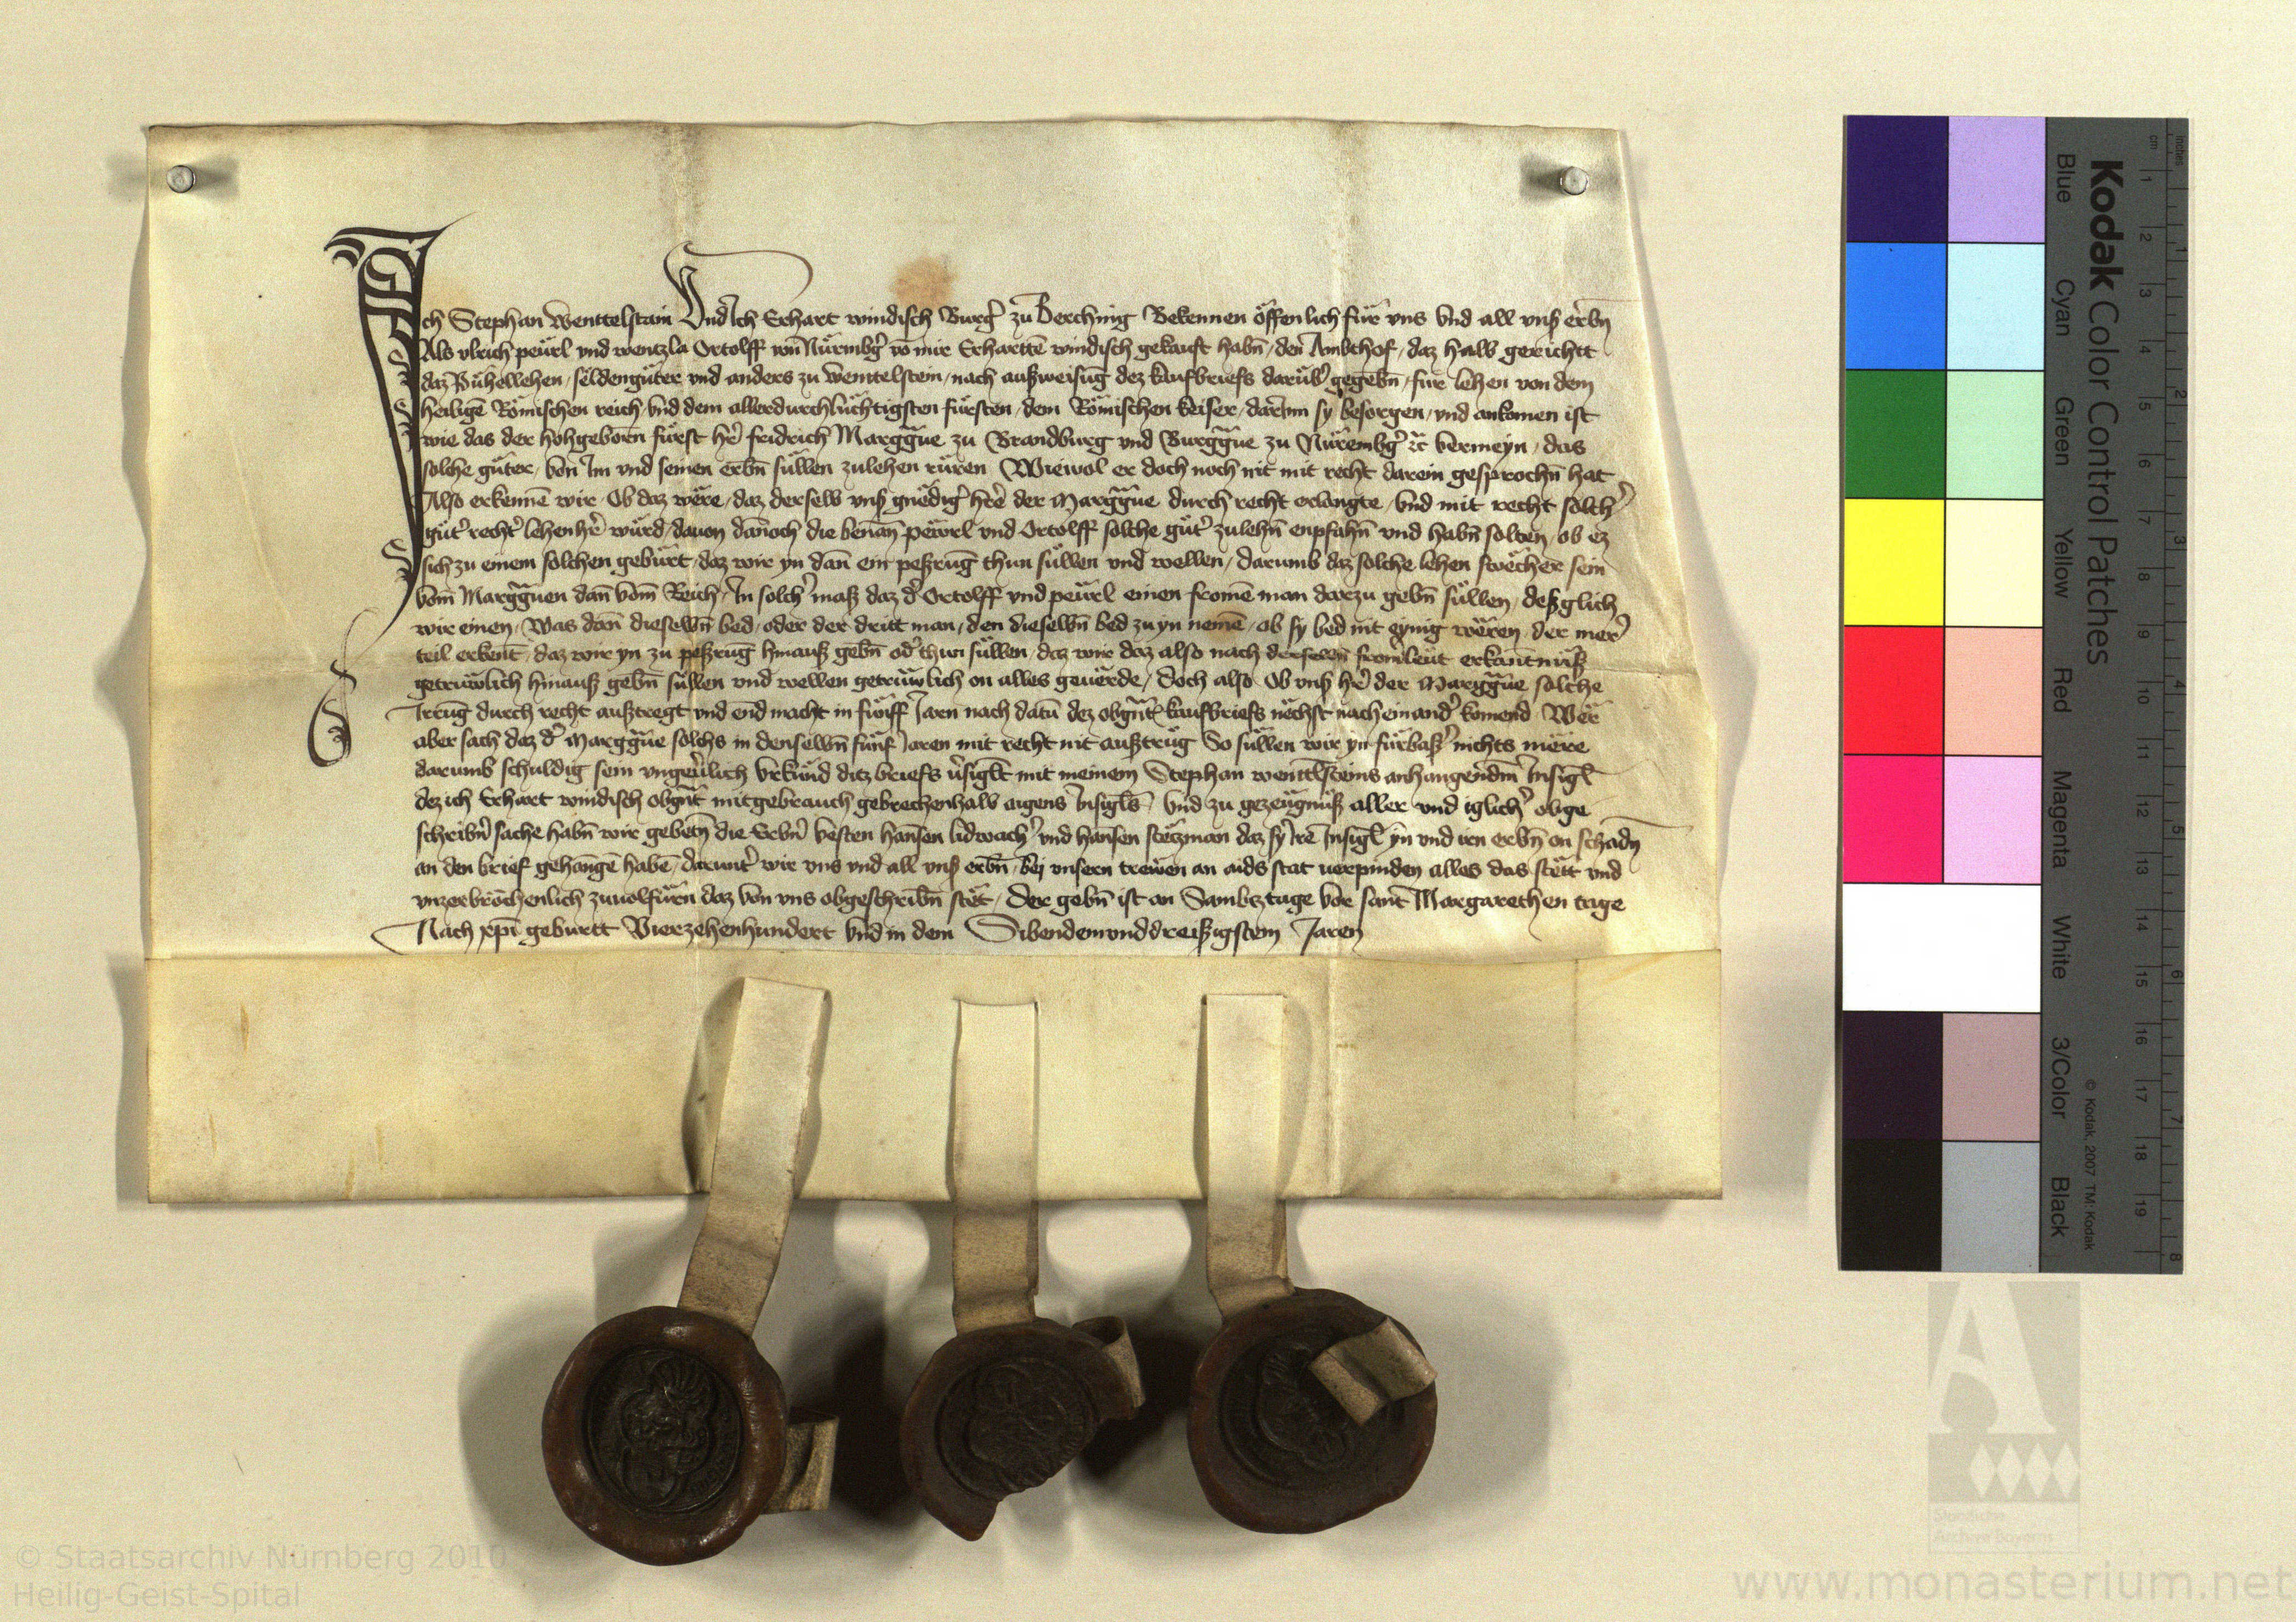 Ich Stephan Wenttelstain Vnd Ich Erhart windisch Burg̉ zu Berching Bekennen öffenlich für vns vnd all vnß erbn̄
Als vlrich peẅrl vnd wentzla Ortolff von Nürmbg̉ vō mir Erhartte windisch gekauft habn̄ / den Ambthof / daz halb gerichtt
daz Bühellehen / seldengüter vnd anders zu wenttelstein / nach außweisūg dez kaufbriefs darüb̉ gegebn̄ / für lehen von dem
heiligē Römischen reich vnd dem allerdurchlüchtigsten fürsten / dem Römischen keiser / darInn sy besorgen / vnd ankomen ist
wie das der hohgeborn fürst hr̉ fridrich Marggͣue zu Brandburg vnd Burggͣue zu Nürembg̉ ꝛc vermeyn / das
solche güter / von Im vnd seinen erbn̄ süllen zulehen rüren Wiewol er doch noch nit mit recht darein gesprochn̄ hat
Also erkennē wir Ob daz wëre / daz derselb vnß gnëdig̉ hr̉e der Marggͣue durch recht erlangte / vnd mit recht solch̉
güt̉ recht̉ lehenhr̉ würd / dauon dānoch die benān peẅrl vnd Ortolff solche güt̉ zulehn̄ enpfahn̄ vnd habn̄ solten / ob ez
sich zu einem solchen gebürt / daz wir yn dān ein peßrūg thun süllen vnd wellen / darumb daz solche lehen swëcher sein
vom̄ Marggͣuen dān vom̄ Reich / In solch̉ maß daz d̉ Ortolff vnd peürl einen fromē man darzu gebn̄ süllen / deßglich
wir einen / Was dān dieselbn̄ bed / oder der dritt man / den dieselbn̄ bed zu yn nemē / ob sy bed nit eynig wëren / der mer̉
teil erkent / daz wir yn zu peßrūg hinauß gebn̄ od̉ thun süllen / daz wir daz also nach derselbn̄ fromleüt erkantnüß
getrüwlich hinauß gebn̄ süllen vnd wellen getrüwlich on alles geuërde / doch also Ob vnß hr̉ der Marggͣue solche
Irrūg durch recht außtregt vnd end macht in fünff Iaren nach datū dez obgn̄t̄ kaufbriefs nëchst nacheinand̉ komend Wër
aber sach daz d̉ Marggͣue solchs in denselbn̄ fünf Iaren mit recht nit außtrüg So süllen wir yn fürbaß nichts mëre
darumb schuldig sein vngeu̓lich Vrkünd ditz briefs v̉sigl̄t mit meinem Stephan wenttl̄steins anhangendm̄ Insigl̄
dez ich Erhart windisch obgn̄t mitgebrauch gebrechenhalb aigens Insigl̄s Vnd zu gezeügnüß aller vnd iglich̉ obge
schribn̄ sache habn̄ wir gebetn̄ die Erbn̄ vesten hansen lidwach̉ vnd hansen stetzman daz sy Irē Insigl̄ yn vnd irn erbn̄ on schadn̄
an den brief gehangē habē / darunt̉ wir vns vnd all vnß erbn̄ / bej vnsern trewen an aids stat uerpinden alles das stëtt vnd
vnzerbrochenlich zuuolfürn daz von vns obgeschribn̄ stët / Der gebn̄ ist an Sambztage vor sant Margarethen tage
Nach xp̄i geburtt Vierzehenhundert vnd in dem Sibendemvnddreißigstem Iaren
Kodak Color Control Patches
Blue Cyan Green Yellow Red Magenta White 3/Color Black
© Kodak, 2007 TM: Kodak
cm 1 2 3 4 5 6 7 8 9 10 11 12 13 14 15 16 17 18 19
inches 1 2 3 4 5 6 7 8
Staatliche
Archive Bayerns
© Staatsarchiv Nürnberg 2010
Heilig-Geist-Spital
www.monasterium.net